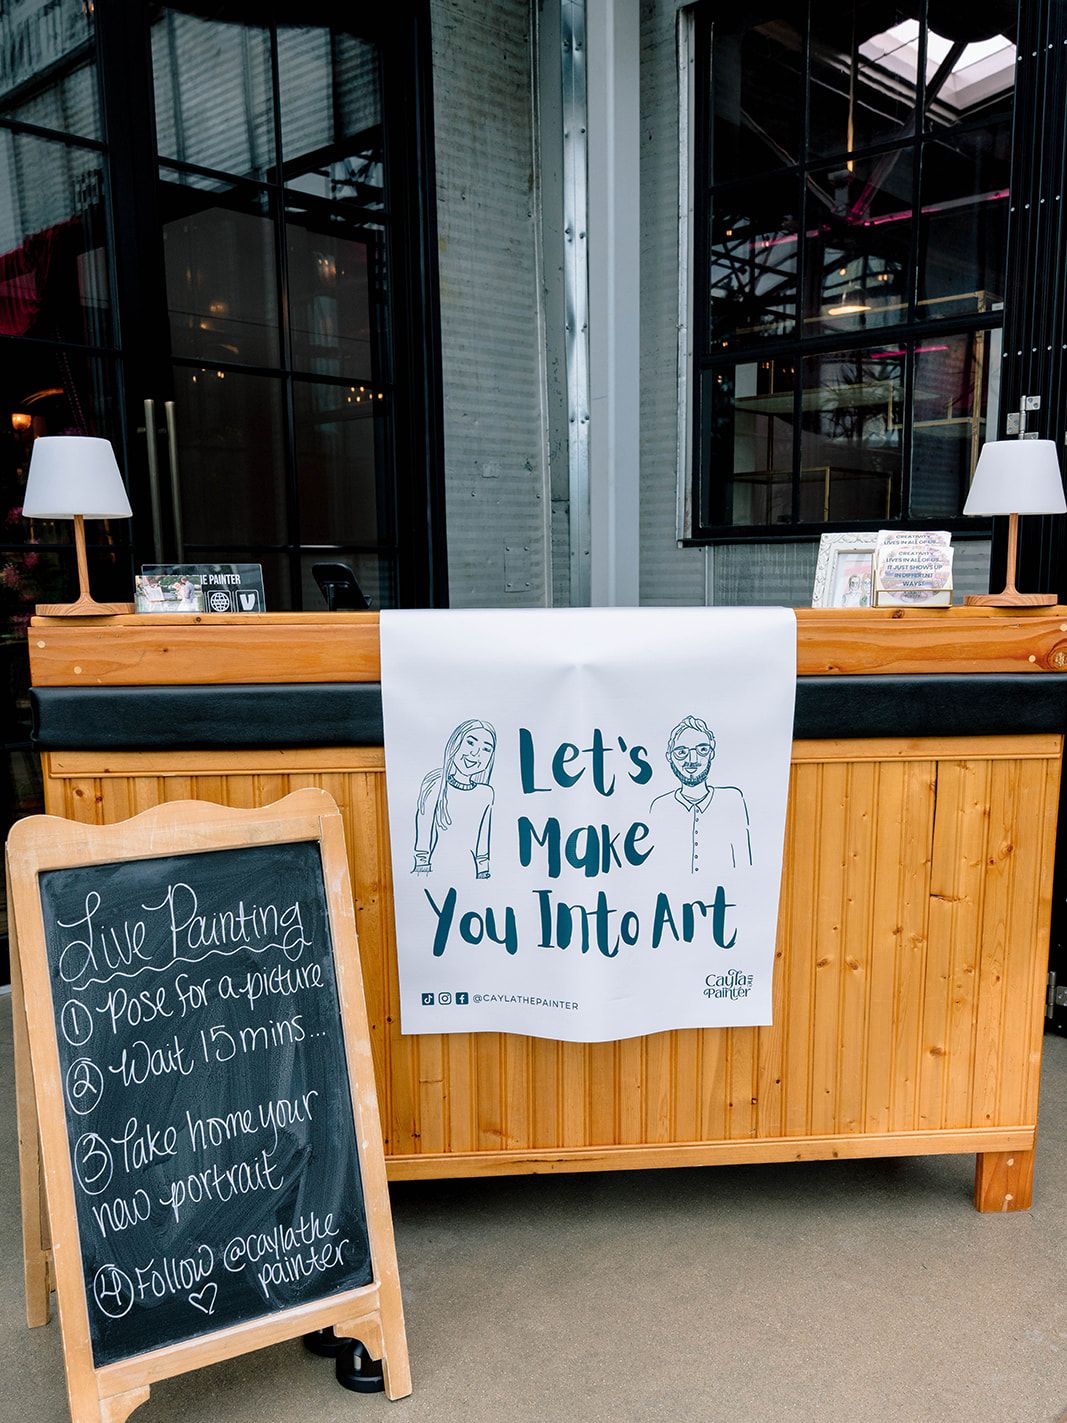 THE PAINTER
V
CREATIVITY
LIVES IN ALL OF US...
CREATIVITY
LIVES IN ALL OF US...
IT JUST SHOWS UP
IN DIFFERENT
WAYS!
Let's
Make
You Into Art
@CAYLATHEPAINTER
Cayla
THE
Painter
Live Painting
① Pose for a picture
② Wait 15 mins...
③ Take home your
new portrait
④ Follow @caylathe
painter